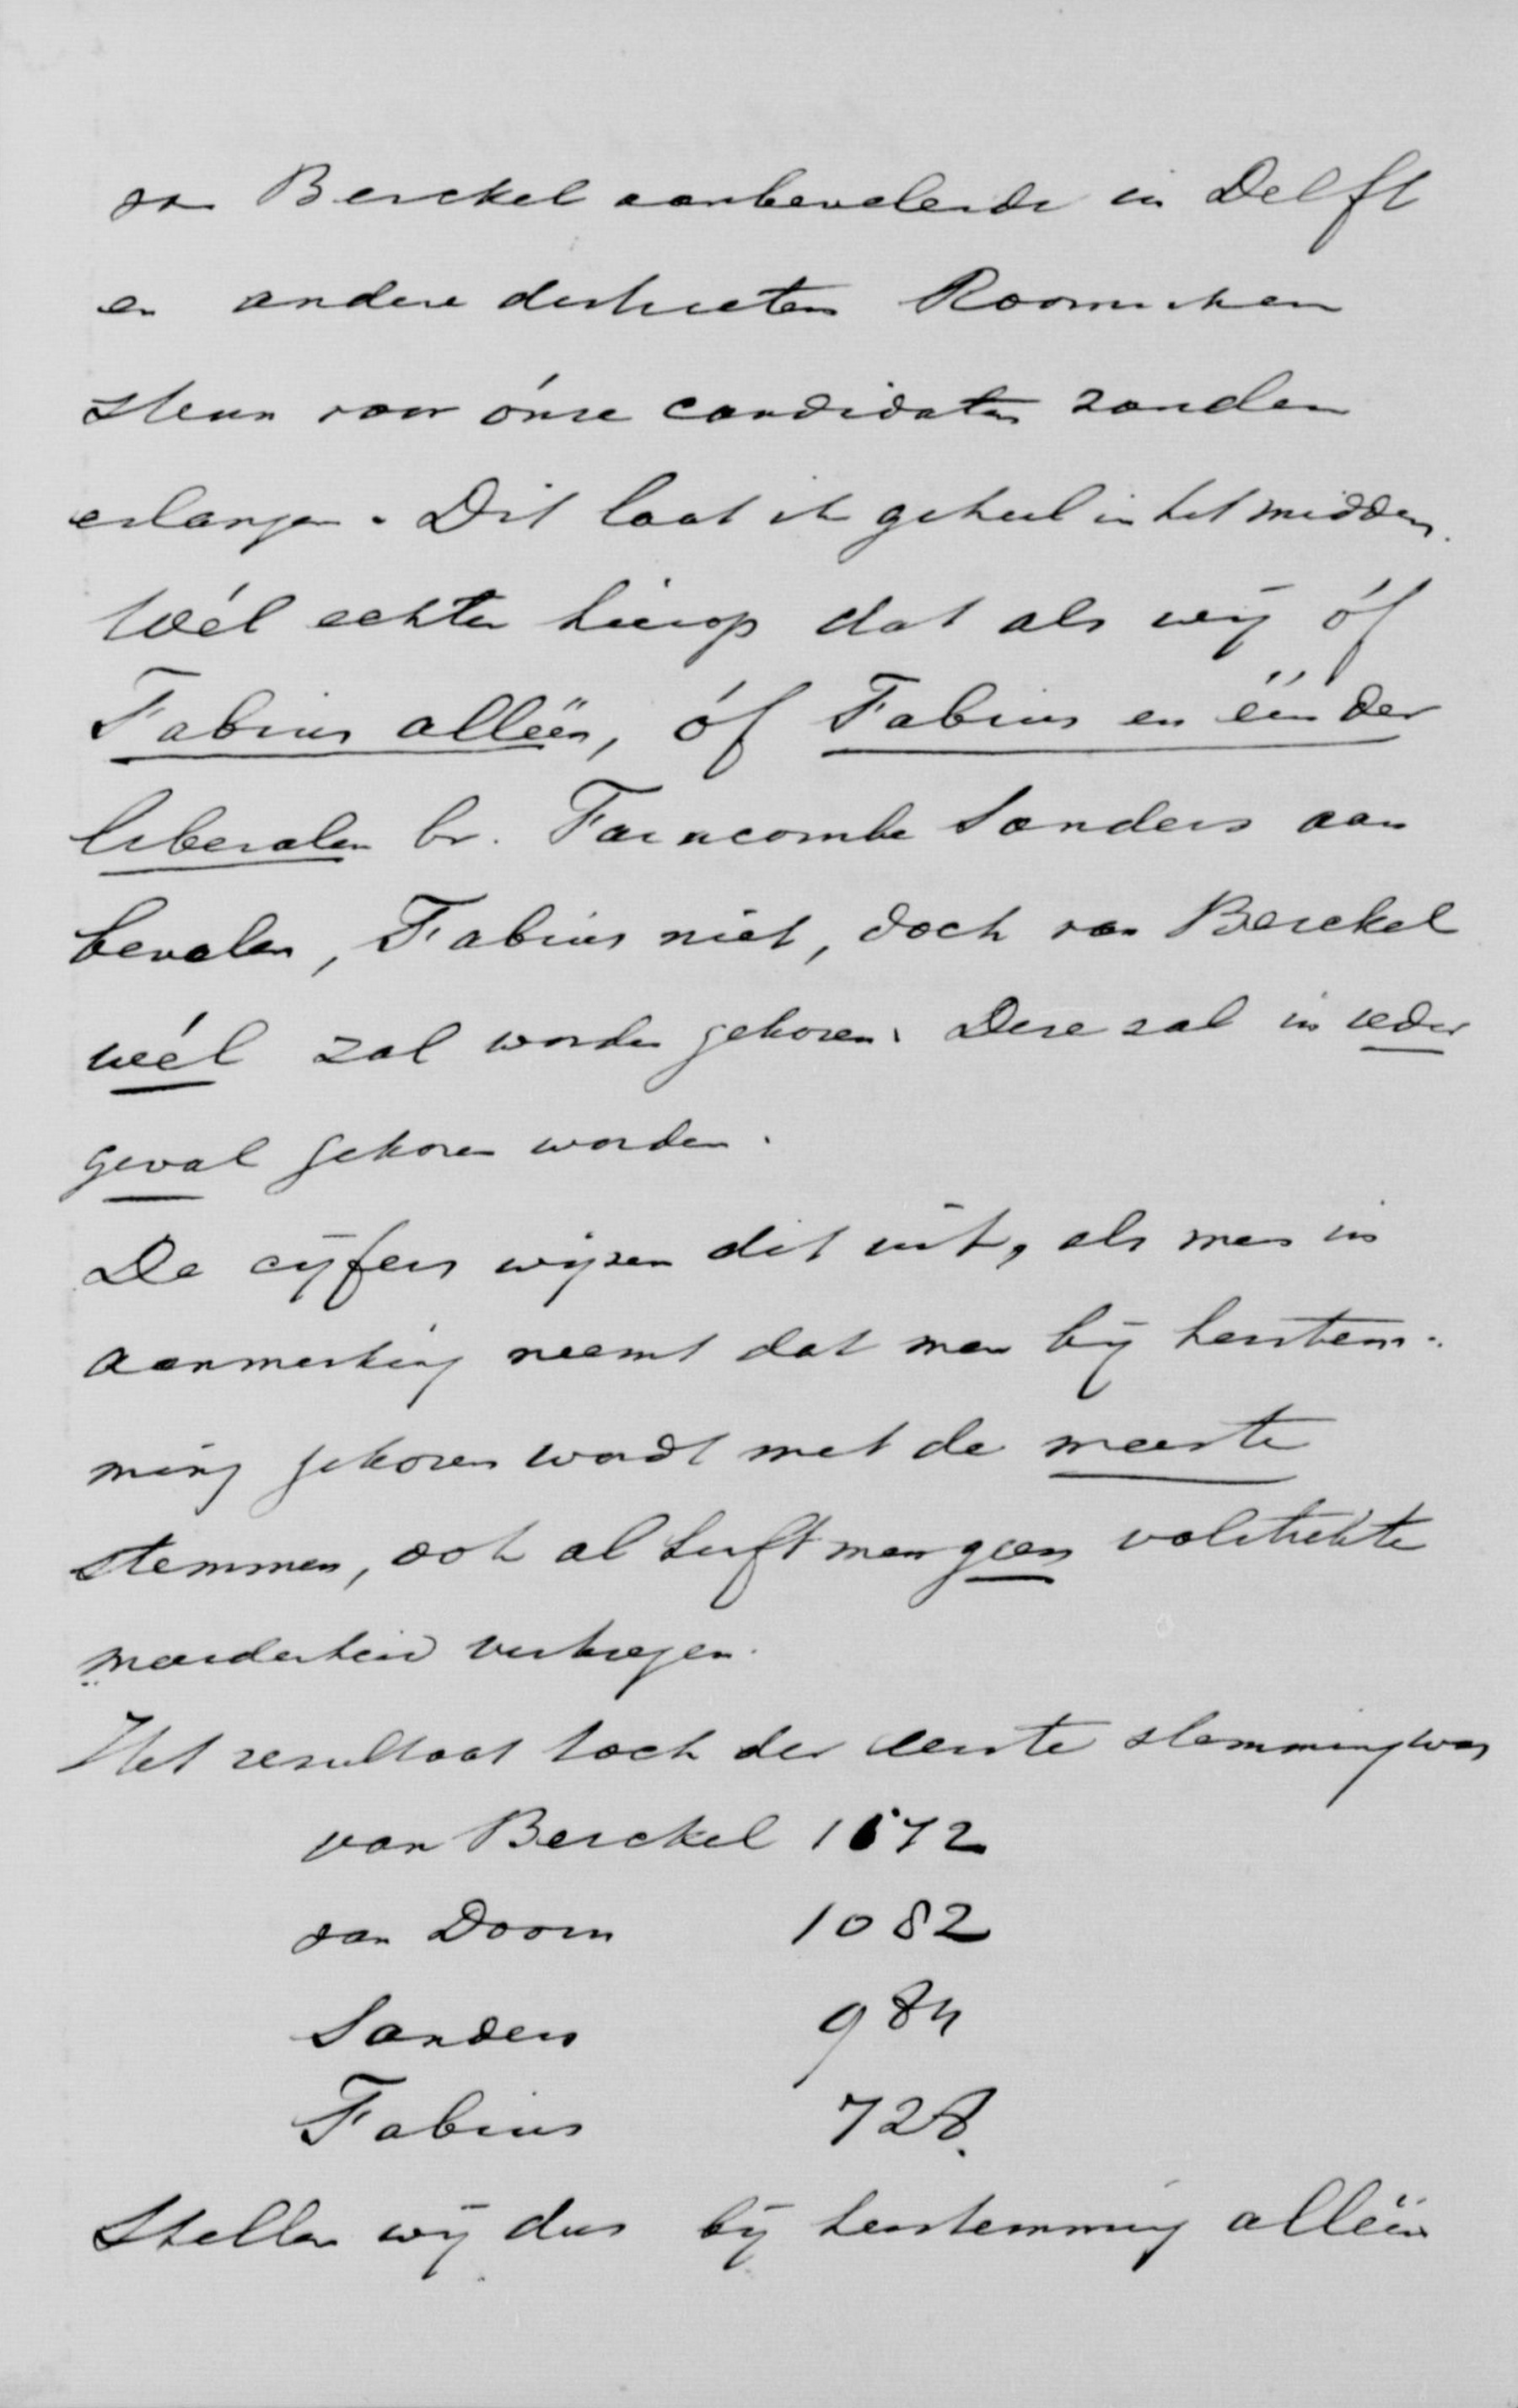 van Berckel aanbevelende in Delft
en andere districten Roomschen
steun voor ónze candidaten zouden
erlangen. Dit laat ik geheel in het midden.
Wél echter hierop dat als wij óf
Fabius alléén, óf Fabius en één der
liberalen bv. Farncombe Sanders aan
bevalen, Fabius niet, doch van Berckel
wél zal worden gekozen. Deze zal in ieder
geval gekozen worden.
De cijfers wijzen dit uit, als men in
aanmerking neemt dat men bij herstem-
ming gekozen wordt met de meeste
stemmen, ook al heeft men geen volstrekte
meerderheid verkregen.
Het resultaat toch der eerste stemming was
van Berckel 1672
van Doorn 1082
Sanders 984
Fabius 728.
Stellen wij dus bij herstemming alléén